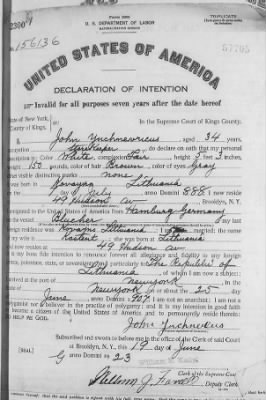 U. S. DEPARTMENT OF LABOR
NATURALIZATION SERVICE
TRIPLICATE
156136
UNITED STATES OF AMERICA
DECLARATION OF INTENTION
Invalid for all purposes seven years after the date hereof
State of New York,
County of Kings,
In the Supreme Court of Kings County.
John Yuchnevicus aged 34 years,
occupation do declare on oath that my personal
description is: Color White, complexion Fair, height feet 3 inches,
weight 150 pounds, color of hair Brown, color of eyes Gray
other visible distinctive marks none
Lithuania
day of July, anno Domini 1888; I now reside
49 Hudson av Brooklyn, N. Y.
I emigrated to the United States of America from Hamburg Germany
on the vessel Blucher; my last
foreign residence was Lithuania; I am married; the name
of my wife is she was born at Lithuania
and now resides at 49 Hudson av
It is my bona fide intention to renounce forever all allegiance and fidelity to any foreign
prince, potentate, state, or sovereignty, and particularly to The Republic of
Lithuania, of whom I am now a subject;
I arrived at the port of New York, in the
State of New York, on or about the 25 day
of June, anno Domini 1907; I am not an anarchist; I am not a
polygamist nor a believer in the practice of polygamy; and it is my intention in good faith
to become a citizen of the United States of America and to permanently reside therein:
SO HELP ME GOD.
John Yuchnevicus
Subscribed and sworn to before me in the office of the Clerk of said Court
at Brooklyn, N. Y., this 19 day of June
[SEAL] anno Domini 1923
Clerk of the Supreme Court.
Deputy Clerk